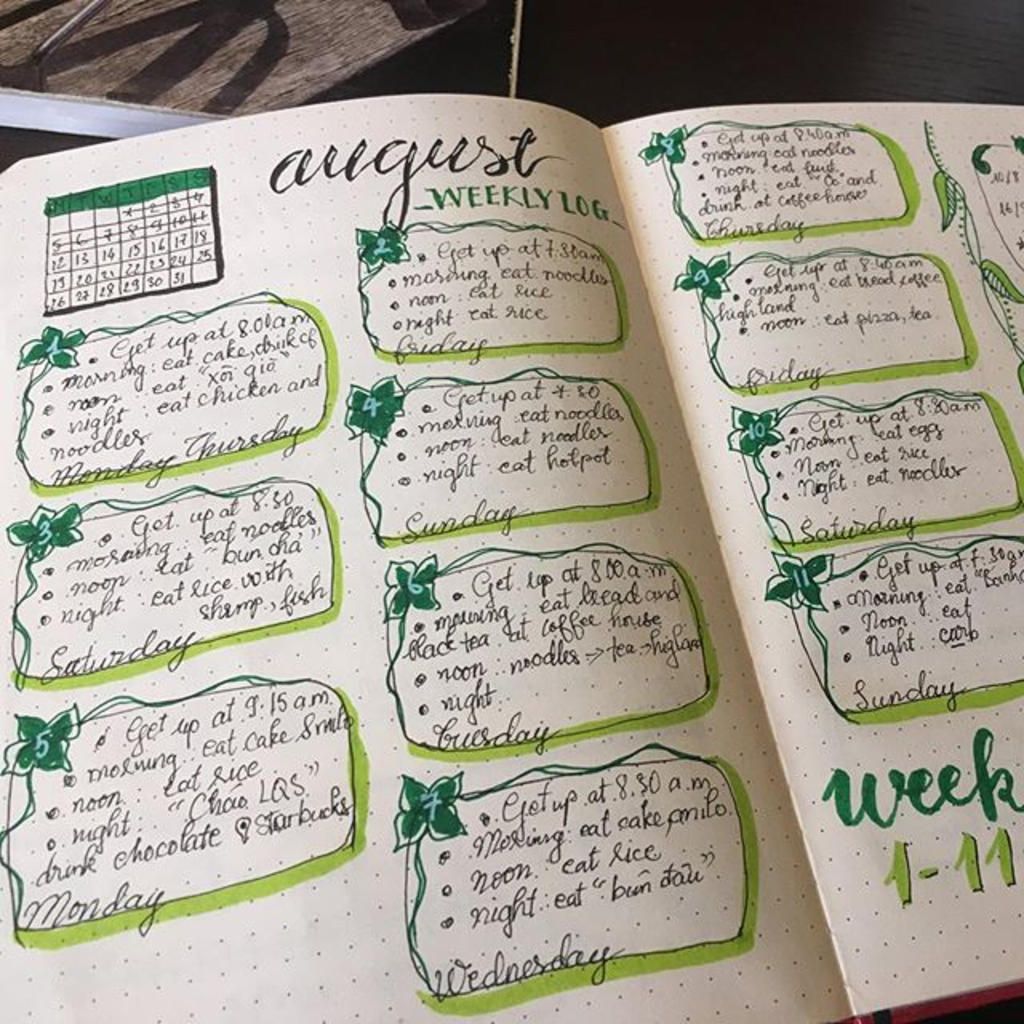 august
-WEEKLY LOG
M T W T F S S
1 2 3 4
5 6 7 8 9 10 11
12 13 14 15 16 17 18
19 20 21 22 23 24 25
26 27 28 29 30 31
1
Get up at 8.00 a.m
morning: eat cake, drink cf
noon : eat "xôi giò"
night : eat chicken and
noodles
Monday Thursday
2
Get up at 7.30am
morning eat noodles
noon : eat rice
night eat rice
friday
3
Get up at 8.30
morning eat noodles
noon : eat "bún chả"
night : eat rice with
shrimp, fish
Saturday
4
Get up at 7.30
morning eat noodles
noon : eat noodles
night : eat hotpot
Sunday
5
Get up at 9.15 am
morning: eat cake & milo
noon : eat rice
night : "Cháo LQS"
drink chocolate Starbucks
Monday
6
Get up at 8.00 a.m
morning : eat bread and
black tea at coffee house
noon : noodles → tea →
night
Tuesday
7
Get up at 8.30 a.m
Morning: eat cake, milo
noon : eat rice
night : eat "bún đậu"
Wednesday
8
Get up at 8.40 a.m
morning eat noodles
noon : eat fruit
night : eat and
drink at coffee house
Thursday
9
Get up at 8:40am
morning : eat bread, coffee
high land
noon : eat pizza, tea
friday
10
Get up at 8:30am
Morning : eat egg
Noon : eat rice
Night : eat noodles
Saturday
11
Get up at 7.30am
Morning : eat
Noon : eat
Night : carb
Sunday
10/8
week
1-11